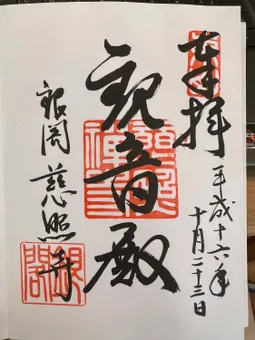 奉拝
平成十六年
十月二十三日
観音殿
銀閣 慈照寺